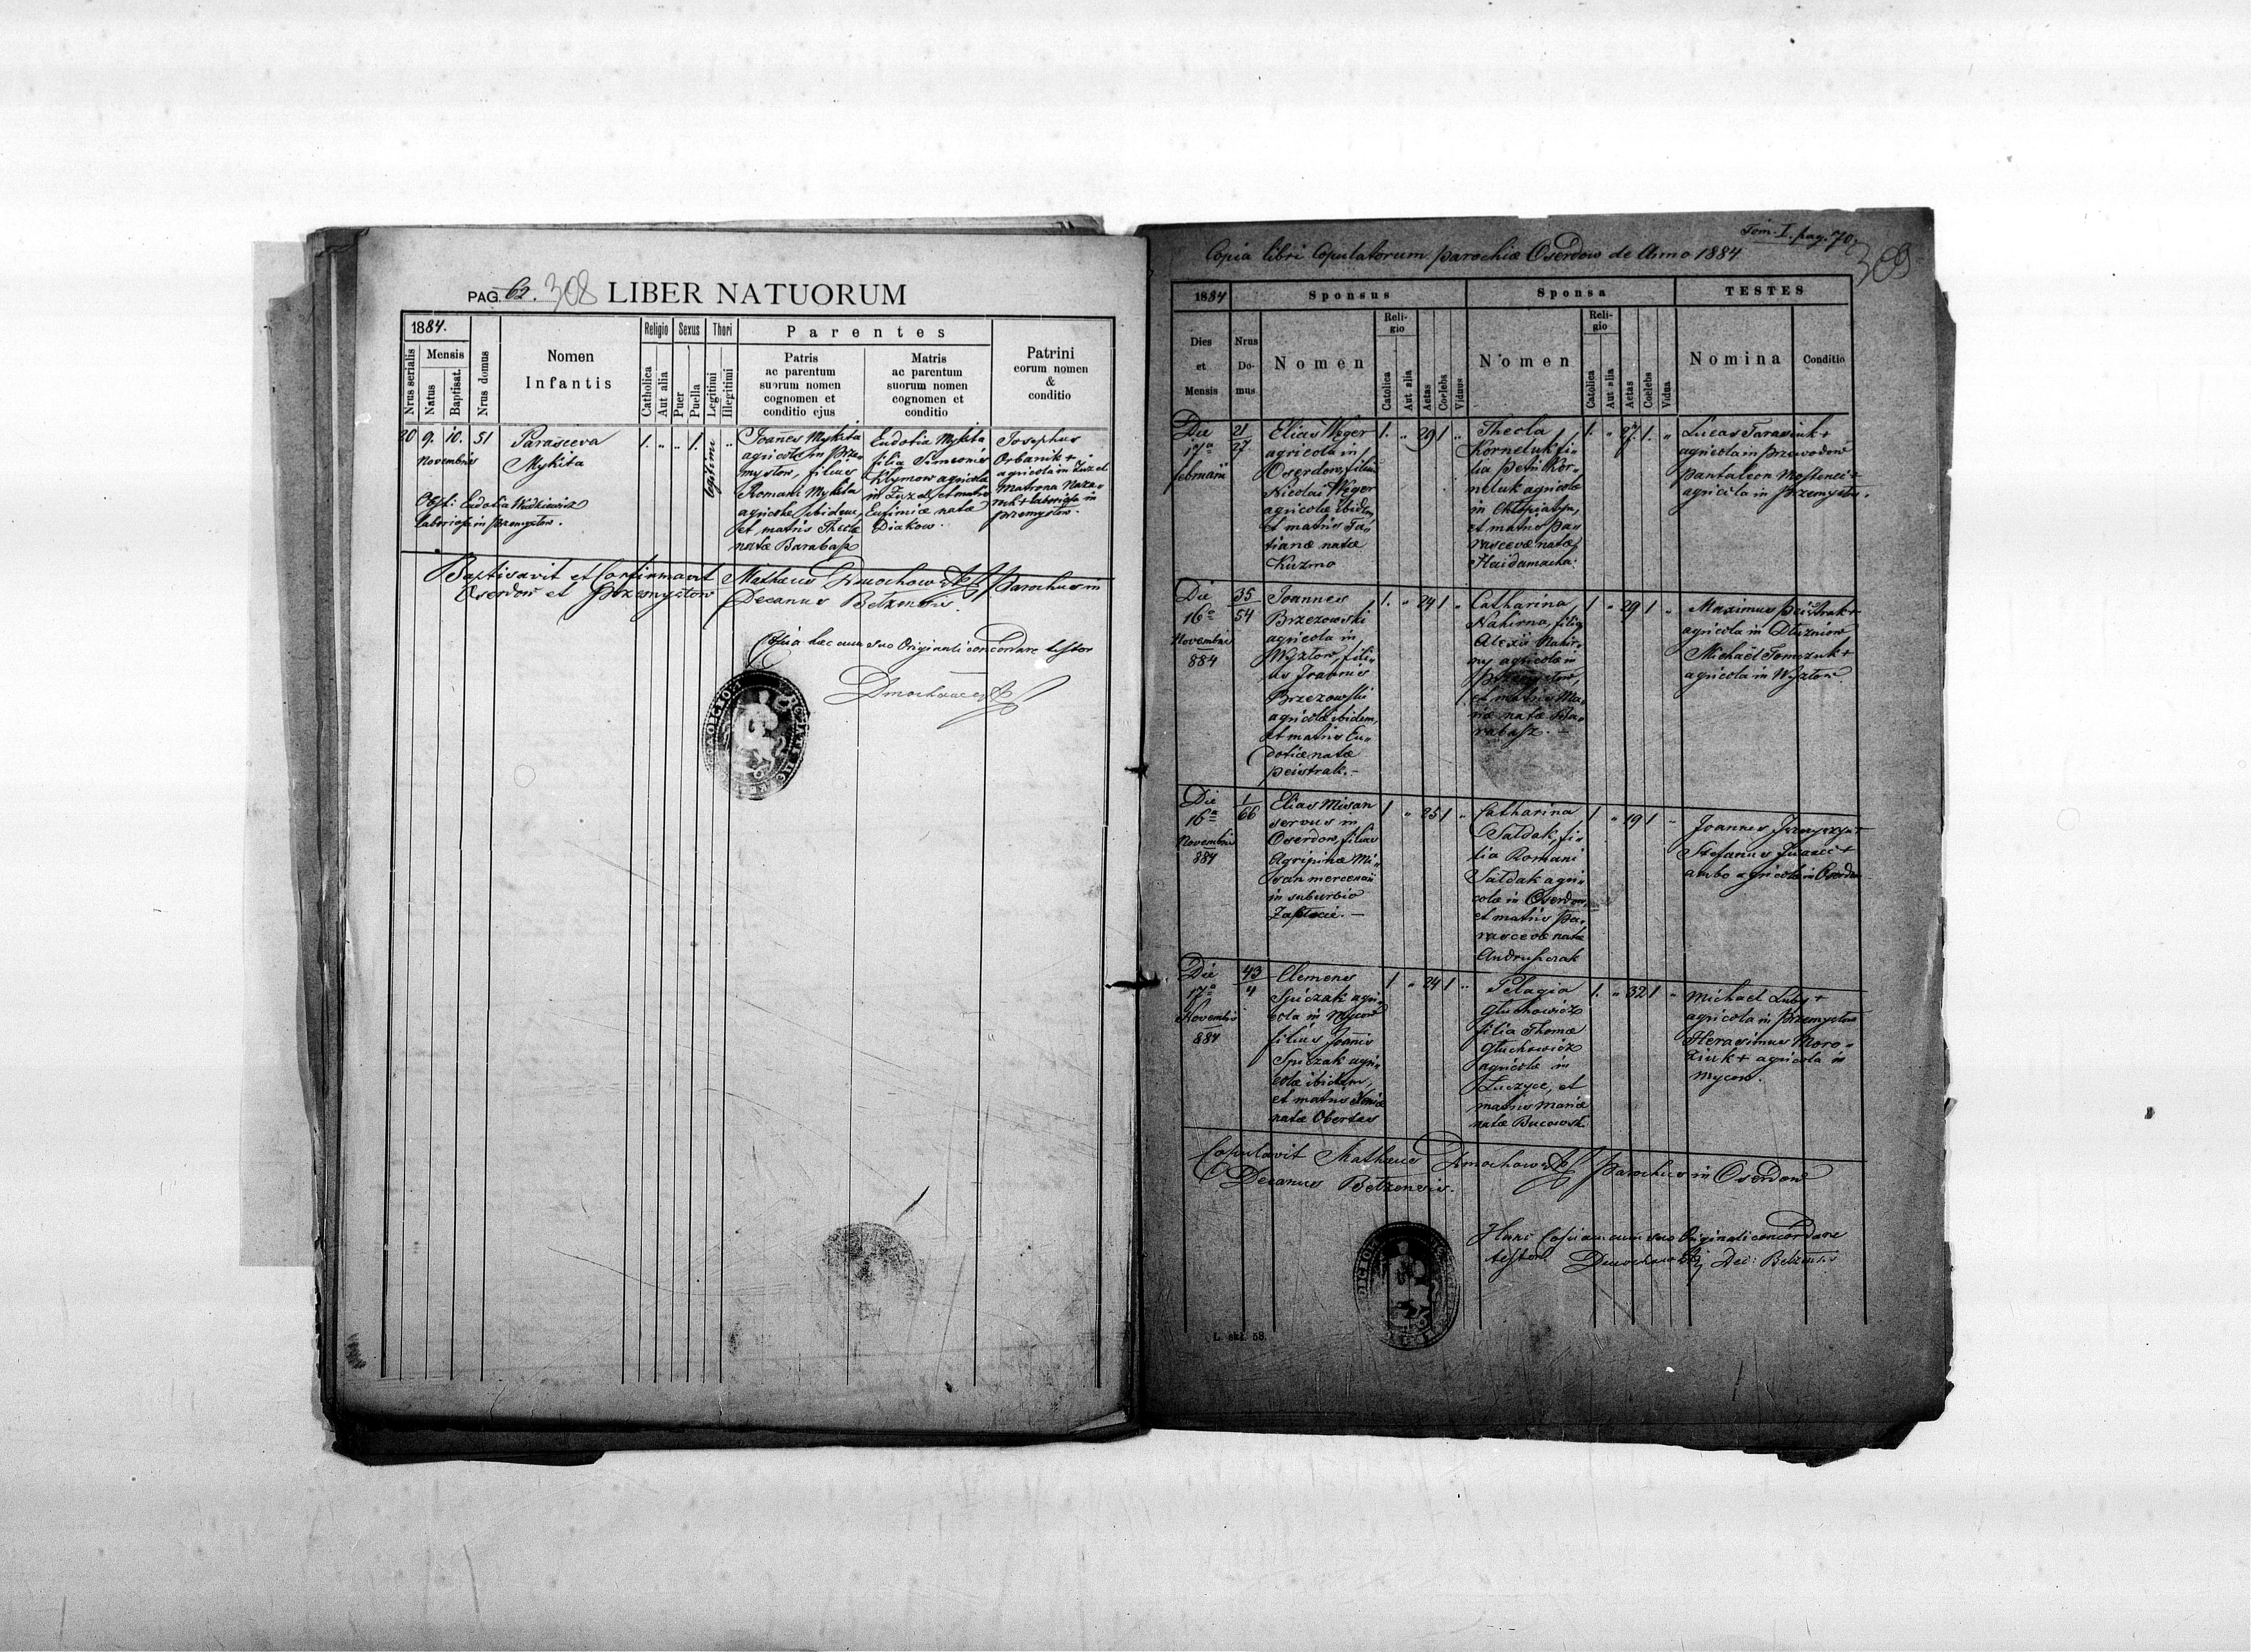 PAG. 62. 308 LIBER NATUORUM
1884.
Nrus serialis
Mensis
Natus
Baptisat.
Nrus domus
Nomen
Infantis
Religio
Catholica
Aut alia
Sexus
Puer
Puella
Thori
Legitimi
Illegitimi
Parentes
Patris
ac parentum
suorum nomen
cognomen et
conditio ejus
Matris
ac parentum
suorum nomen
cognomen et
conditio
Patrini
eorum nomen
&
conditio
20 9. 10. 51
Novembris
Parasceva
Mykita
1. „ „ 1. legitimi „
Obst: Eudotia
laboriosa in Przemysłow.
Joannes Mykita
agricola in Prze-
mysłow, filius
Romani Mykita
agricolæ ibidem,
et matris Theclæ
natæ Barabasz
Eudotia Mykita
filia Simeonis
Klymow agricolæ
in Żużel, et matris
Eufimiæ natæ
Diakow.
Josephus
Orbanik +
agricola in Żużel
Matrona Naza-
ruk + laboriosa in
Przemysłow.
Baptisavit et Confirmavit Matheus Dmochowski Parochus in
Oserdow et Przemysłow Decanus Bełzensis.
Copia hæc cum suo Originali concordare testor
Dmochowski
Tom. I. pag. 70.
309
Copia libri Copulatorum parochiæ Oserdow de Anno 1884
1884
Dies
et
Mensis
Nrus
Do-
mus
Sponsus
Nomen
Reli-
gio
Catolica
Aut alia
Aetas
Coelebs
Viduus
Sponsa
Nomen
Reli-
gio
Catolica
Aut alia
Aetas
Coelebs
Vidua
TESTES
Nomina
Conditio
Die
17a
februarii
21
27
Elias Weger
agricola in
Oserdow, filius
Nicolai Weger
agricolæ ibidem
et matris Ta-
tianæ natæ
Kuzmo
1. „ 29 1 „
Thecla
Korneluk fi-
lia Petri Kor-
neluk agricolæ
in Chłopiatyn,
et matris Pa-
rascevæ natæ
Haidamacha.
1. „ 27. 1. „
Lucas Tarasiuk +
agricola in Przewodow
Pantaleon
agricola in Przemysłow.
Die
16a
Novembris
884
35
54
Joannes
Brzezowski
agricola in
Wyżłow, fili-
us Joannis
Brzezowski
agricolæ ibidem,
et matris Eu-
dotiæ natæ
Peistrak.-
1. „ 24 1 „
Catharina
Nahirna, filia
Alexii Nahir-
ny agricolæ in
Przemysłow,
et matris Ma-
riæ natæ Ba-
rabasz.-
1 „ 29 1 „
Maximus Peistrak +
agricola in Dłużniow
Michaël Tomczuk +
agricola in Wyżłow.
Die
16a
Novembris
884
1
66
Elias Misan
servus in
Oserdow, filius
Agripinæ Mi-
san mercenarii
in suburbio
1 „ 25 1 „
Catharina
Sałdak, fi-
lia Romani
Sałdak agri-
colæ in Oserdow,
et matris Pa-
rascevæ natæ
1 „ 19 1 „
Joannes
Stefanus
ambo agricolæ in Oserdow
Die
17a
Novembris
884
43
4
Clemens
Spiczak agri-
cola in Mycow
filius Joannis
Spiczak agri-
colæ ibidem,
et matris Xeniæ
natæ
1 „ 24 1 „
Pelagia
Głuchowicz
filia Thomæ
Głuchowicz
agricolæ in
Łuczyce, et
matris Mariæ
natæ
1. „ 32 1 „
Michael Luby +
agricola in Przemysłow
Herasimus Moro-
ziuk + agricola in
Mycow.
Copulavit Matheus Dmochowski Parochus in Oserdow
Decanus Bełzensis.
Hanc Copiam cum suo Originali concordare
testor Dmochowski Dec: Bełzensis
L. skł. 58.